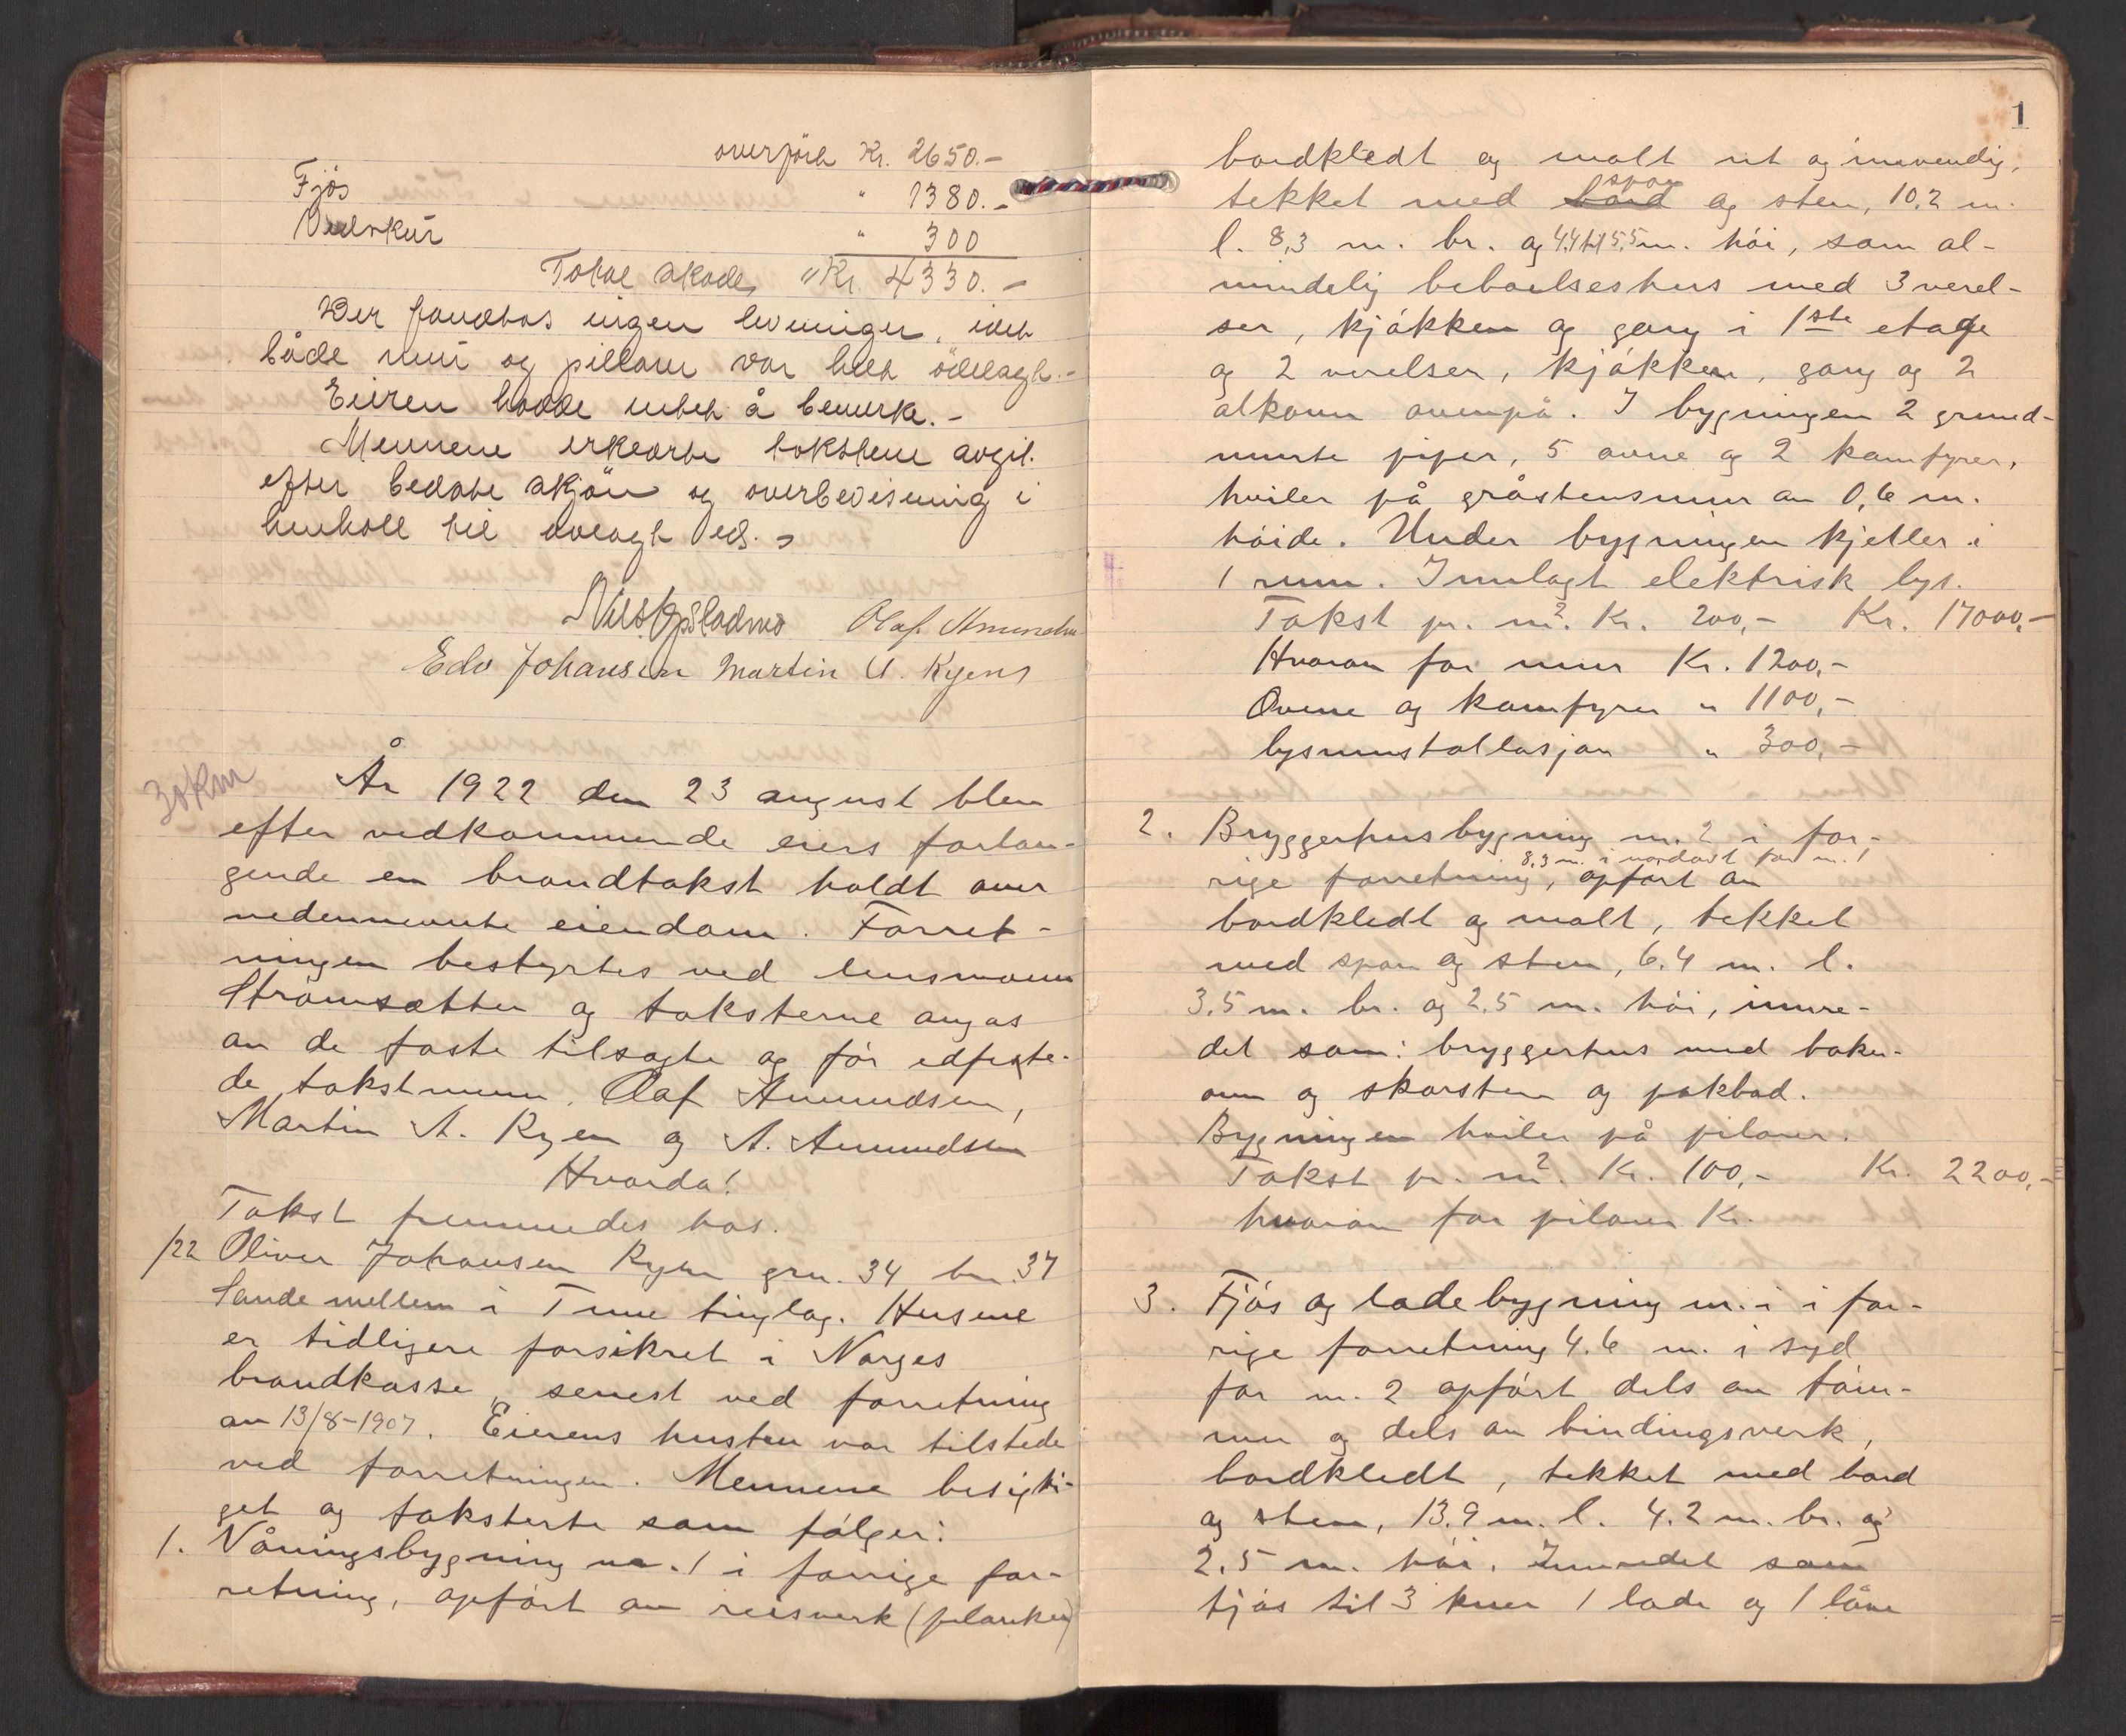 overført Kr. 2650.-
Fjøs " 1380.-
Vedskur " 300
Total skade "Kr. 4330.-
Der fandtes ingen levninger, idet
både mur og pillarer var helt ödelagt.-
Eieren hadde intet å bemerke.-
Mennene erklærte takstene avgit
efter bedste skjön og overbevisning i
henhold til avlagt ed.
Nils Opstadmo Olaf Amundsen
Edv Johansen Martin A. Ryens
30 km
År 1922 den 23 august blev
efter vedkommende eiers forlan-
gende en brandtakst holdt over
nedennevnte eiendom. Forret-
ningen bestyrtes ved lensmann
Strømsætter og taksterne avgas
av de faste tilsagte og før edfeste-
de takstmenn, Olaf Amundsen,
Martin A. Ryen og A. Amundsen
Hvorda!
Takst fremmedes hos.
/22 Oliver Johansen Ryen grn. 34 bn. 37
Sande mellem i Tune tinglag. Husene
er tidligere forsikret i Norges
brandkasse, senest ved forretning
av 13/8-1907. Eierens hustru var tilstede
ved forretningen. Mennene besigti-
get og taksterte som følger:
1. Våningsbygning nr. 1 i forrige for-
retning, opført av reisverk (planker)
1
bordkledt og malt ut og innvendig,
tekket med bord spon og sten, 10,2 m.
l. 8,3 m. br. og 4,4 til 5,5 m. høi, som al-
mindelig beboelseshus med 3 verel-
ser, kjøkken og gang i 1ste etage
og 2 verelser, kjøkken, gang og 2
alkover ovenpå. I bygningen 2 grund-
murte piper, 5 ovne og 2 komfyrer,
hviler på gråstensmur av 0,6 m.
høide. Under bygningen kjeller i
1 rum. Innlagt elektrisk lys.
Takst pr. m². Kr. 200,- Kr. 17000,-
Hvorav for mur Kr. 1200,-
Ovene og komfyrer " 1100,-
lysinnstallasjon " 300,-
2. Bryggerhusbygning nr. 2 i for-
8,3 m. i nordost for nr. 1
rige forretning, opført av
bordkledt og malt, tekket
med spon og sten, 6.4 m. l.
3.5 m. br. og 2.5 m. høi, innre-
det som: bryggerhus med baker-
ovn og skorsten og pakbod.
Bygningen hviler på pilarer.
Takst pr. m². Kr. 100,- Kr. 2200,-
hvorav for pilarer Kr.
3. Fjøs og ladebygning nr. i i for-
rige forretning 4.6 m. i syd
for nr. 2 opført dels av tøm-
mer og dels av bindingsverk,
bordkledt, tekket med bord
og sten, 13.9 m. l. 4.2 m. br. og
2.5 m. høi. Innredet som
fjøs til 3 kuer 1 lade og 1 låve